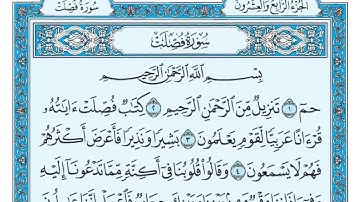 الجزء الرابع والعشرون
سورة فصلت
سُورَةُ فُصِّلَتْ
بِسْمِ ٱللَّهِ ٱلرَّحْمَٰنِ ٱلرَّحِيمِ
حمٓ ١ تَنزِيلٌ مِّنَ ٱلرَّحْمَٰنِ ٱلرَّحِيمِ ٢ كِتَٰبٌ فُصِّلَتْ ءَايَٰتُهُۥ
قُرْءَانًا عَرَبِيًّا لِّقَوْمٍ يَعْلَمُونَ ٣ بَشِيرًا وَنَذِيرًا فَأَعْرَضَ أَكْثَرُهُمْ
فَهُمْ لَا يَسْمَعُونَ ٤ وَقَالُوا۟ قُلُوبُنَا فِىٓ أَكِنَّةٍ مِّمَّا تَدْعُونَآ إِلَيْهِ